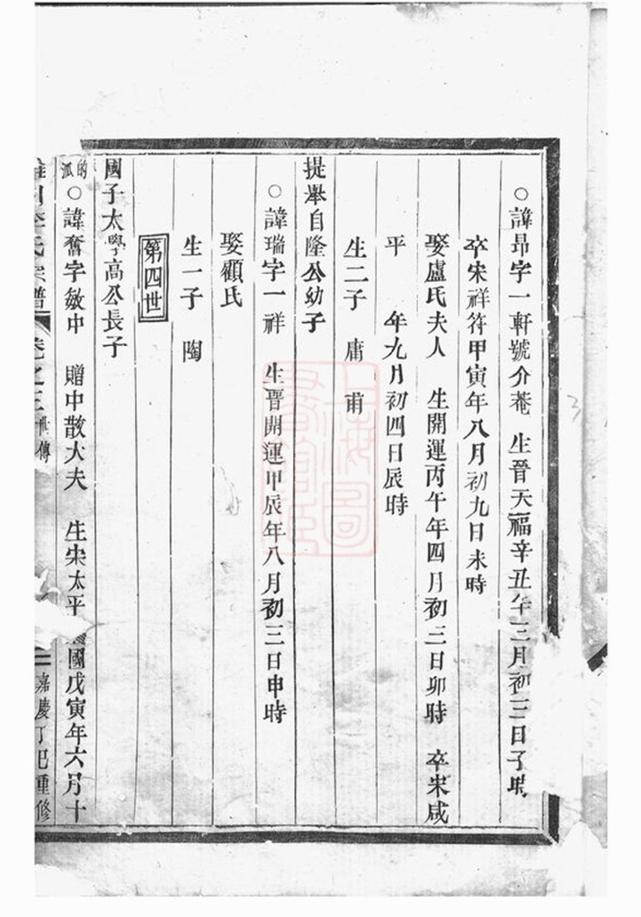 ○諱昻字一軒號介菴 生晉天福辛丑年三月初三日子時
卒宋祥符甲寅年八月初九日未時
娶盧氏夫人 生開運丙午年四月初三日卯時 卒宋咸
平 年九月初四日辰時
生二子 庸 甫
提舉自隆公幼子
○諱瑞字一祥 生晉開運甲辰年八月初三日申時
娶顧氏
生一子 陶
第四世
國子太學高公長子
○諱奮字敏中 贈中散大夫 生宋太平興國戊寅年六月十
李氏宗譜 卷之三 世傳 二 嘉慶丁巳重修
上海圖